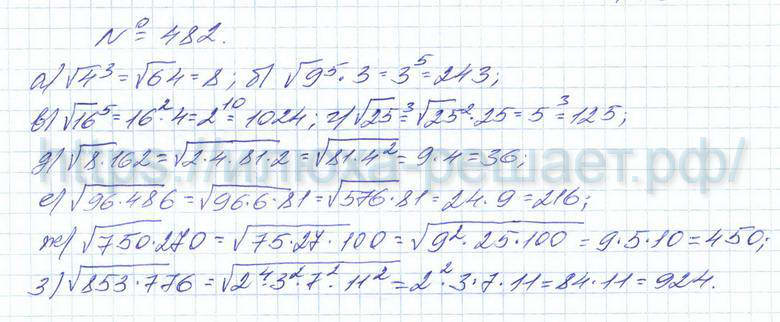 № 482.
а) √4³ = √64 = 8; б) √9⁵ = 3⁵ = 243;
в) √16⁵ = 16² · 4 = 2¹⁰ = 1024; г) √25³ = √25² · 25 = 5³ = 125;
д) √8 · 162 = √2 · 4 · 81 · 2 = √81 · 4² = 9 · 4 = 36;
е) √96 · 486 = √96 · 6 · 81 = √576 · 81 = 24 · 9 = 216;
ж) √750 · 270 = √75 · 27 · 100 = √9² · 25 · 100 = 9 · 5 · 10 = 450;
з) √853 · 776 = √2⁴ · 3² · 7² · 11² = 2² · 3 · 7 · 11 = 84 · 11 = 924.
https://илюха-решает.рф/